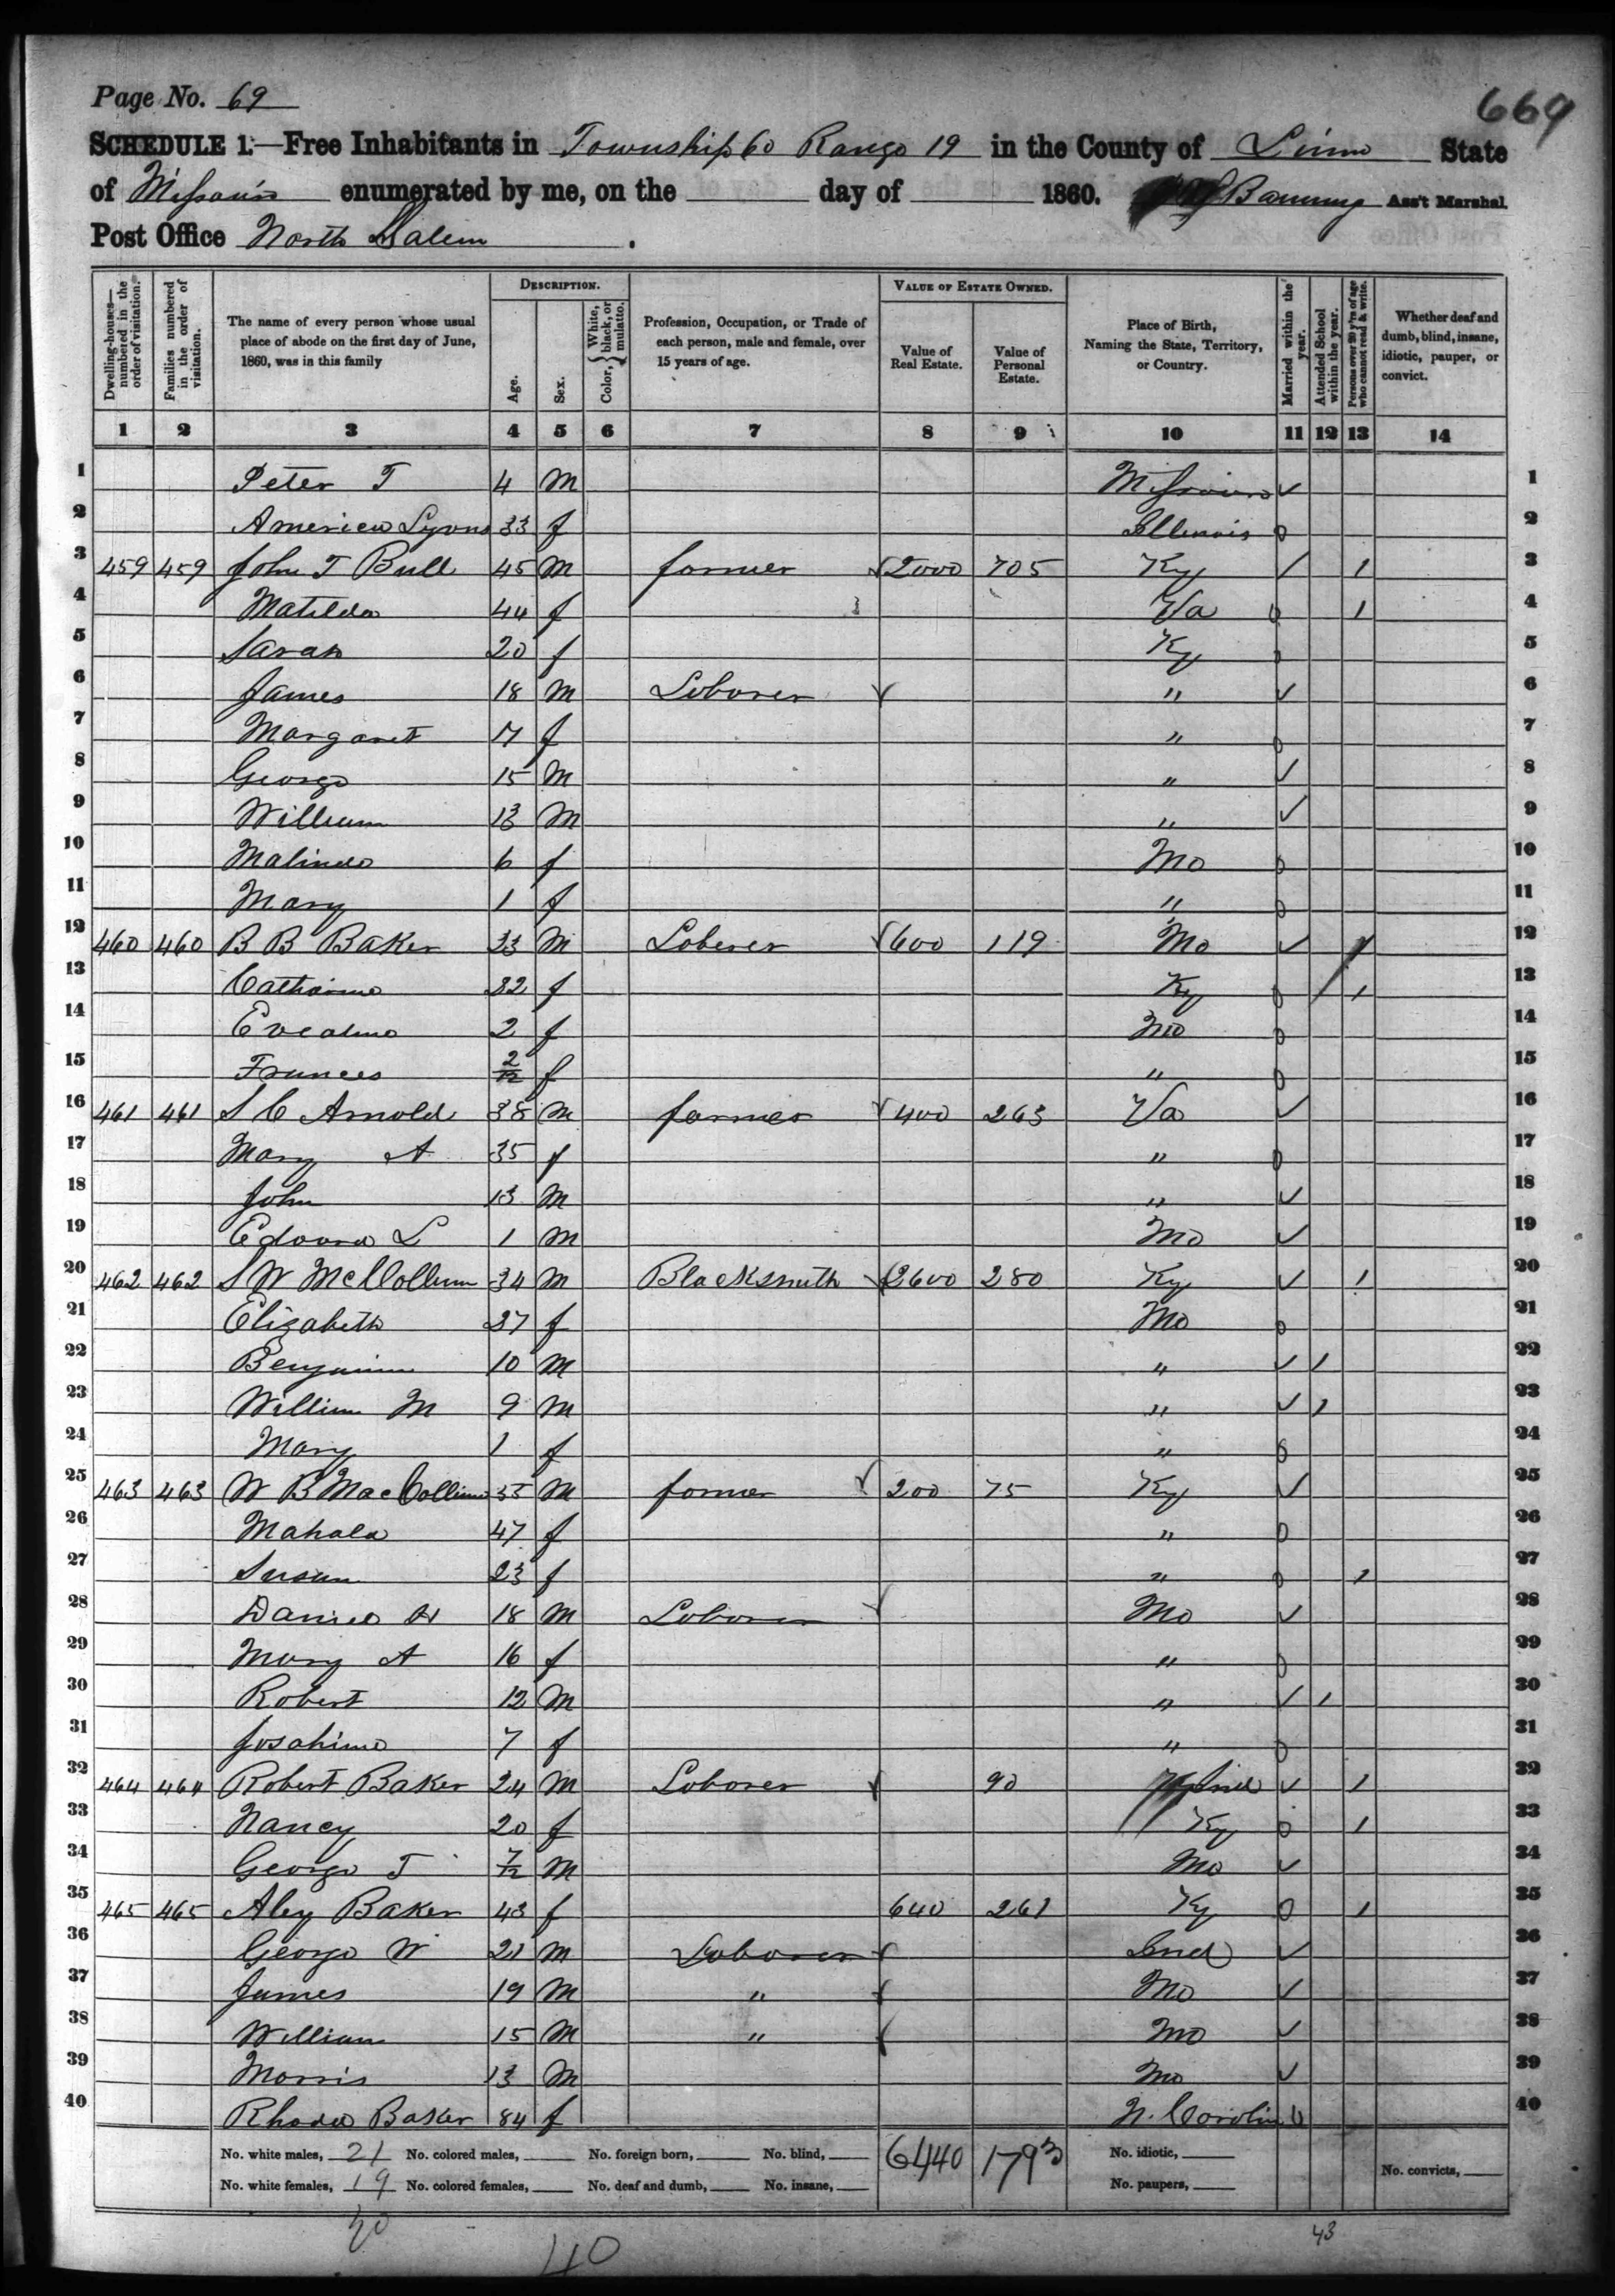 Page No. 69
669
SCHEDULE 1.—Free Inhabitants in Township 60 Range 19 in the County of Linn State
of Missouri enumerated by me, on the day of 1860. Ass't Marshal.
Post Office North Salem .
Dwelling-houses—numbered in the order of visitation. Families numbered in the order of visitation. The name of every person whose usual place of abode on the first day of June, 1860, was in this family DESCRIPTION. Age. Sex. Color, { White, black, or mulatto. Profession, Occupation, or Trade of each person, male and female, over 15 years of age. VALUE OF ESTATE OWNED. Value of Real Estate. Value of Personal Estate. Place of Birth, Naming the State, Territory, or Country. Married within the year. Attended School within the year. Persons over 20 y'rs of age who cannot read & write. Whether deaf and dumb, blind, insane, idiotic, pauper, or convict.
1 2 3 4 5 6 7 8 9 10 11 12 13 14
1 Peter T 4 M Missouri 1
2 America Lyons 33 f Illinois 2
3 459 459 John T Bull 45 M farmer 2000 705 Ky / 1 3
4 Matilda 44 f Va 1 4
5 Sarah 20 f Ky 5
6 James 18 M Laborer " 6
7 Margaret 17 f " 7
8 George 15 M " 8
9 William 13 M " 9
10 Malinda 6 f Mo 10
11 Mary 1 f " 11
12 460 460 B B Baker 33 M Laborer 600 119 Mo 12
13 Catharine 32 f Ky 1 13
14 Evealine 2 f Mo 14
15 Frances 2/12 f " 15
16 461 461 S C Arnold 38 M farmer 400 263 Va 16
17 Mary A 35 f " 17
18 John 13 M " 18
19 Edward L 1 M Mo 19
20 462 462 S W McCollum 34 M Blacksmith 2600 280 Ky 1 20
21 Elizabeth 27 f Mo 21
22 Benjamin 10 M " 1 22
23 William M 9 M " 1 23
24 Mary 1 f " 24
25 463 463 W B MacCollum 55 M farmer 200 75 Ky 25
26 Mahala 47 f " 26
27 Susan 23 f " 1 27
28 Daniel H 18 M Laborer Mo 28
29 Mary A 16 f " 29
30 Robert 12 M " 1 30
31 Josahine 7 f " 31
32 464 464 Robert Baker 24 M Laborer 90 Ind 1 32
33 Nancy 20 f Ky 1 33
34 George T 7/12 M Mo 34
35 465 465 Aley Baker 43 f 640 261 Ky 1 35
36 George W 21 M Laborer Ind 36
37 James 19 M " Mo 37
38 William 15 M " Mo 38
39 Morris 13 M Mo 39
40 Rhoda Baker 84 f N. Carolin 40
No. white males, 21 No. colored males, No. foreign born, No. blind, 6440 1793 No. idiotic,
No. white females, 19 No. colored females, No. deaf and dumb, No. insane, No. paupers, No. convicts,
40
43